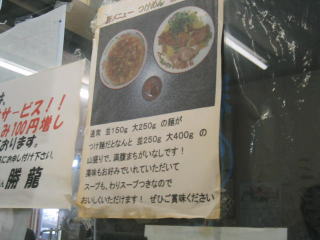 新メニュー つけめん
通常 並150g 大250g の麺が
つけ麺だとなんと 並250g 大400g の
山盛りで、満腹まちがいなしです!
薬味もお好みでいれていただいて
スープも、わりスープつきなので
おいしくいただけます! ぜひご賞味ください
サービス!!
み100円増し
おります。
にお申し付け下さい。
勝龍